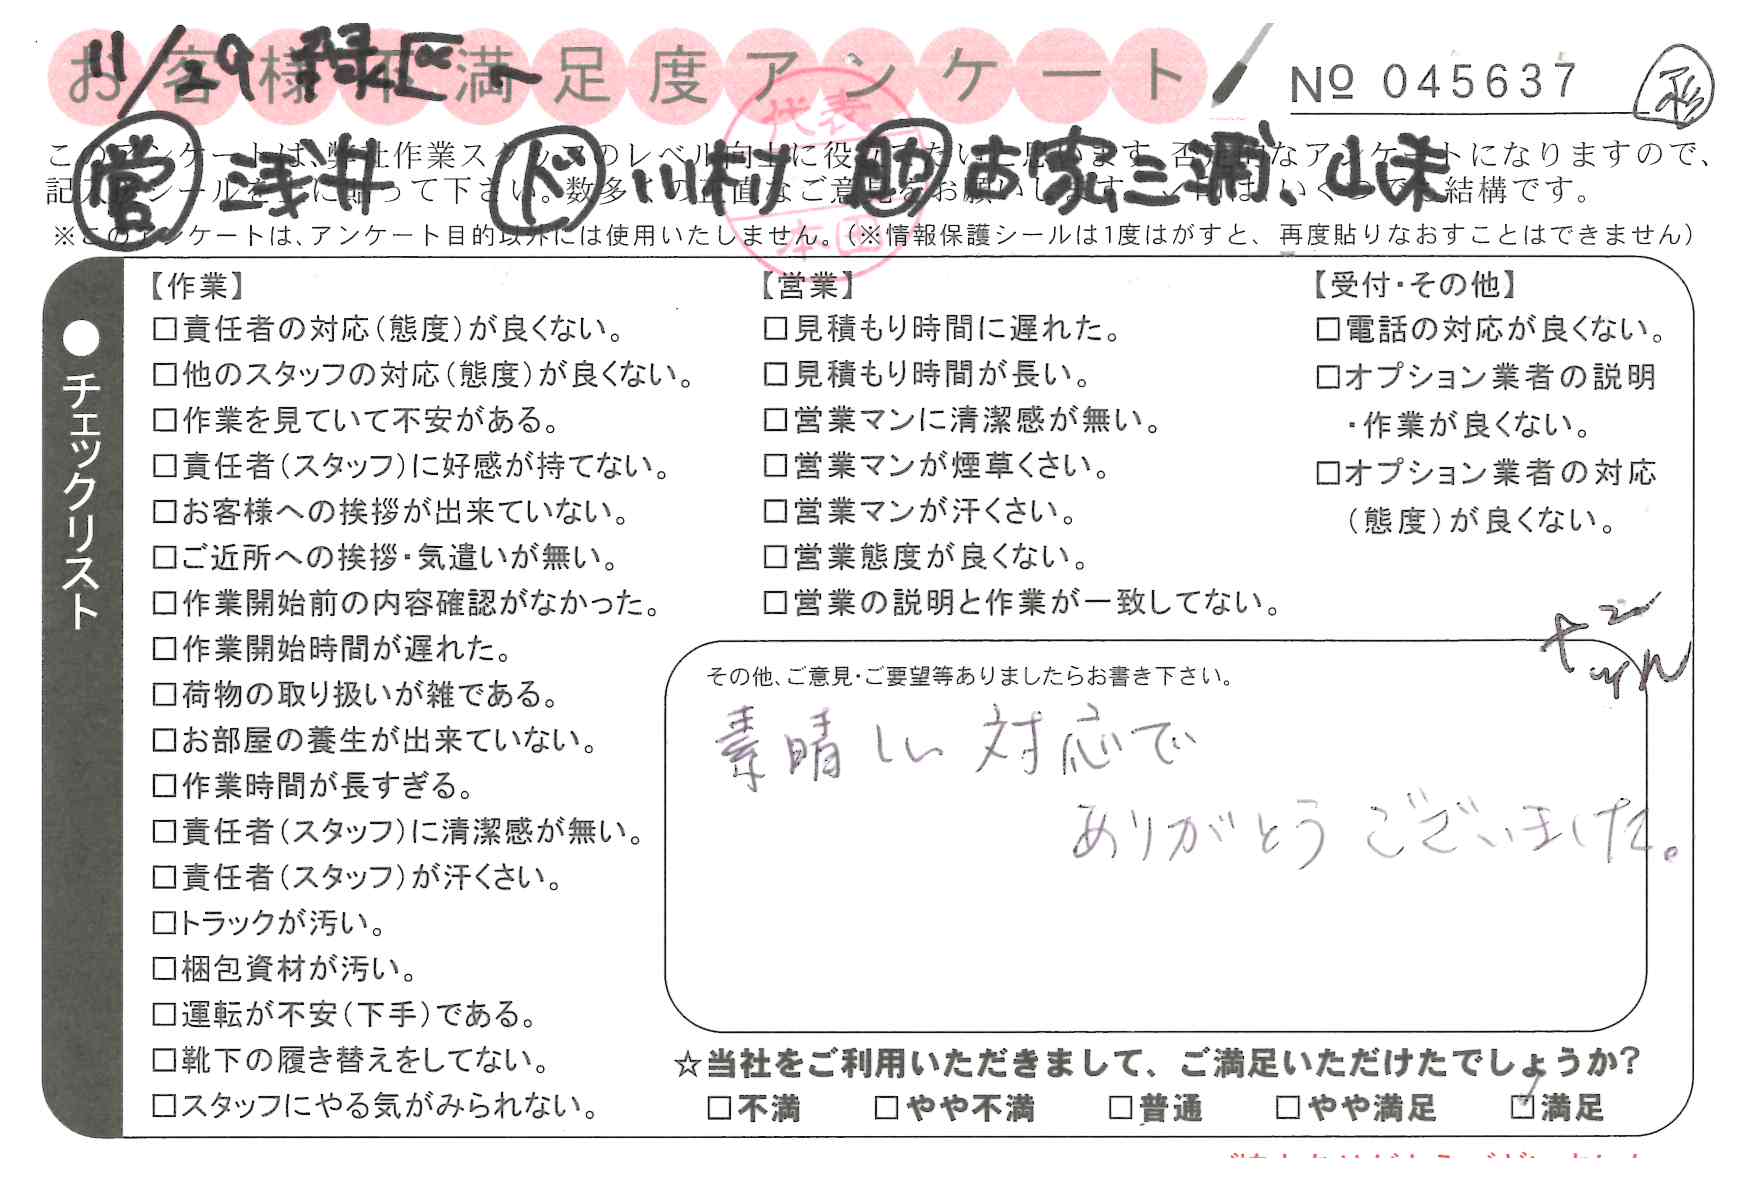 お客様不満足度アンケート
11/29 緑区〜
No 045637
このアンケートは、弊社作業スタッフのレベル向上に役立てたいと思います。否定的なアンケートになりますので、
営 浅井 ド 川村 助 三浦、
記入後シールを上に貼って下さい。数多くの正直なご意見をお願いします。いくつでも結構です。
代表
本田
※このアンケートは、アンケート目的以外には使用いたしません。(※情報保護シールは1度はがすと、再度貼りなおすことはできません)
●チェックリスト
【作業】
□責任者の対応(態度)が良くない。
□他のスタッフの対応(態度)が良くない。
□作業を見ていて不安がある。
□責任者(スタッフ)に好感が持てない。
□お客様への挨拶が出来ていない。
□ご近所への挨拶・気遣いが無い。
□作業開始前の内容確認がなかった。
□作業開始時間が遅れた。
□荷物の取り扱いが雑である。
□お部屋の養生が出来ていない。
□作業時間が長すぎる。
□責任者(スタッフ)に清潔感が無い。
□責任者(スタッフ)が汗くさい。
□トラックが汚い。
□梱包資材が汚い。
□運転が不安(下手)である。
□靴下の履き替えをしてない。
□スタッフにやる気がみられない。
【営業】
□見積もり時間に遅れた。
□見積もり時間が長い。
□営業マンに清潔感が無い。
□営業マンが煙草くさい。
□営業マンが汗くさい。
□営業態度が良くない。
□営業の説明と作業が一致してない。
【受付・その他】
□電話の対応が良くない。
□オプション業者の説明
・作業が良くない。
□オプション業者の対応
(態度)が良くない。
その他、ご意見・ご要望等ありましたらお書き下さい。
素晴しい対応で
ありがとうございました。
☆当社をご利用いただきまして、ご満足いただけたでしょうか?
□不満 □やや不満 □普通 □やや満足 ☑満足